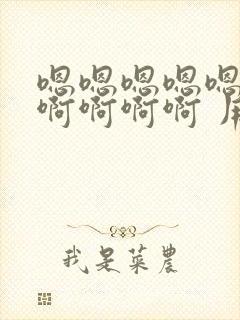 嗯嗯嗯嗯嗯
啊啊啊啊
我是菜農